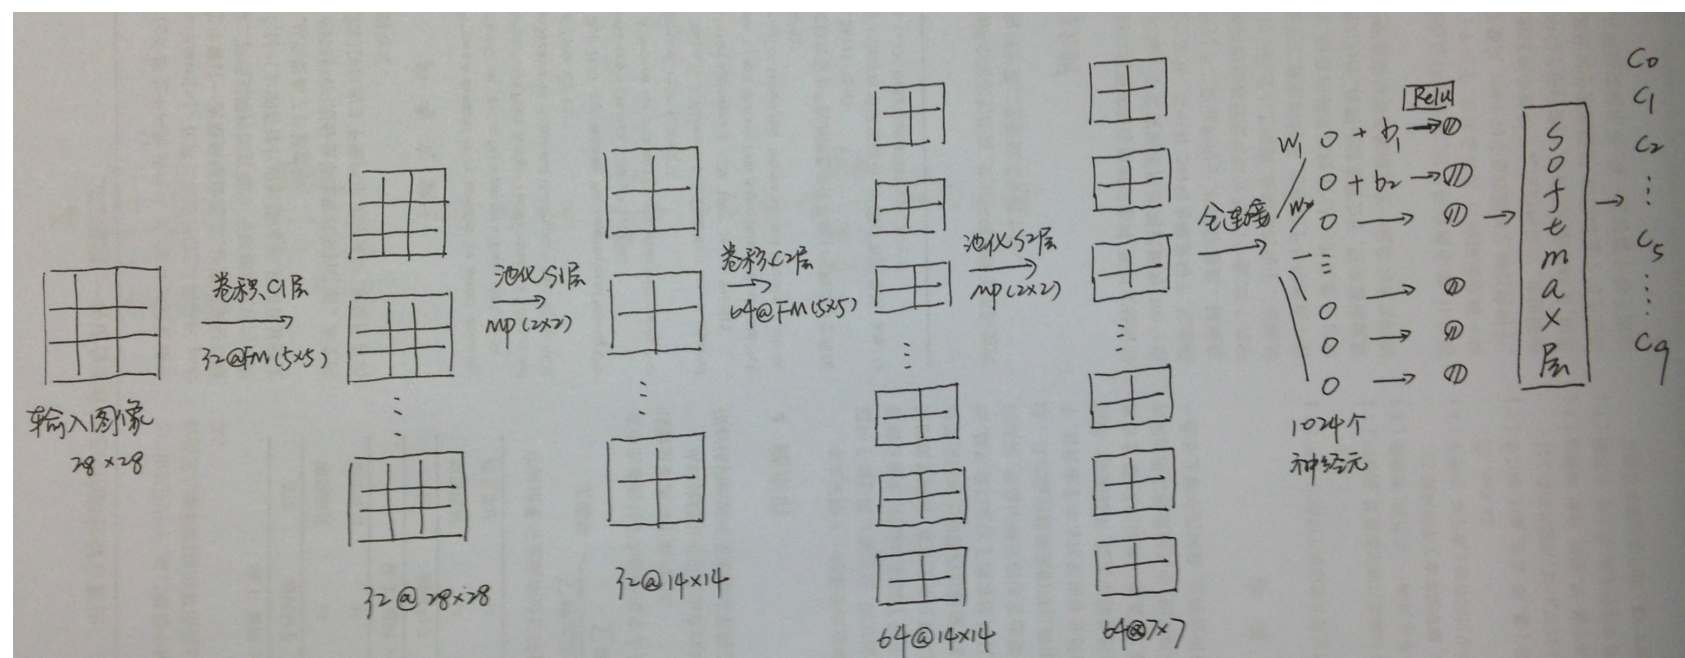 输入图像
28×28
卷积C1层
32@FM(5×5)
32@28×28
池化S1层
MP(2×2)
32@14×14
卷积C2层
64@FM(5×5)
64@14×14
池化S2层
MP(2×2)
64@7×7
全连接
W1 + b1
W2 + b2
1024个
神经元
Relu
softmax层
C0
C1
C2
C5
C9